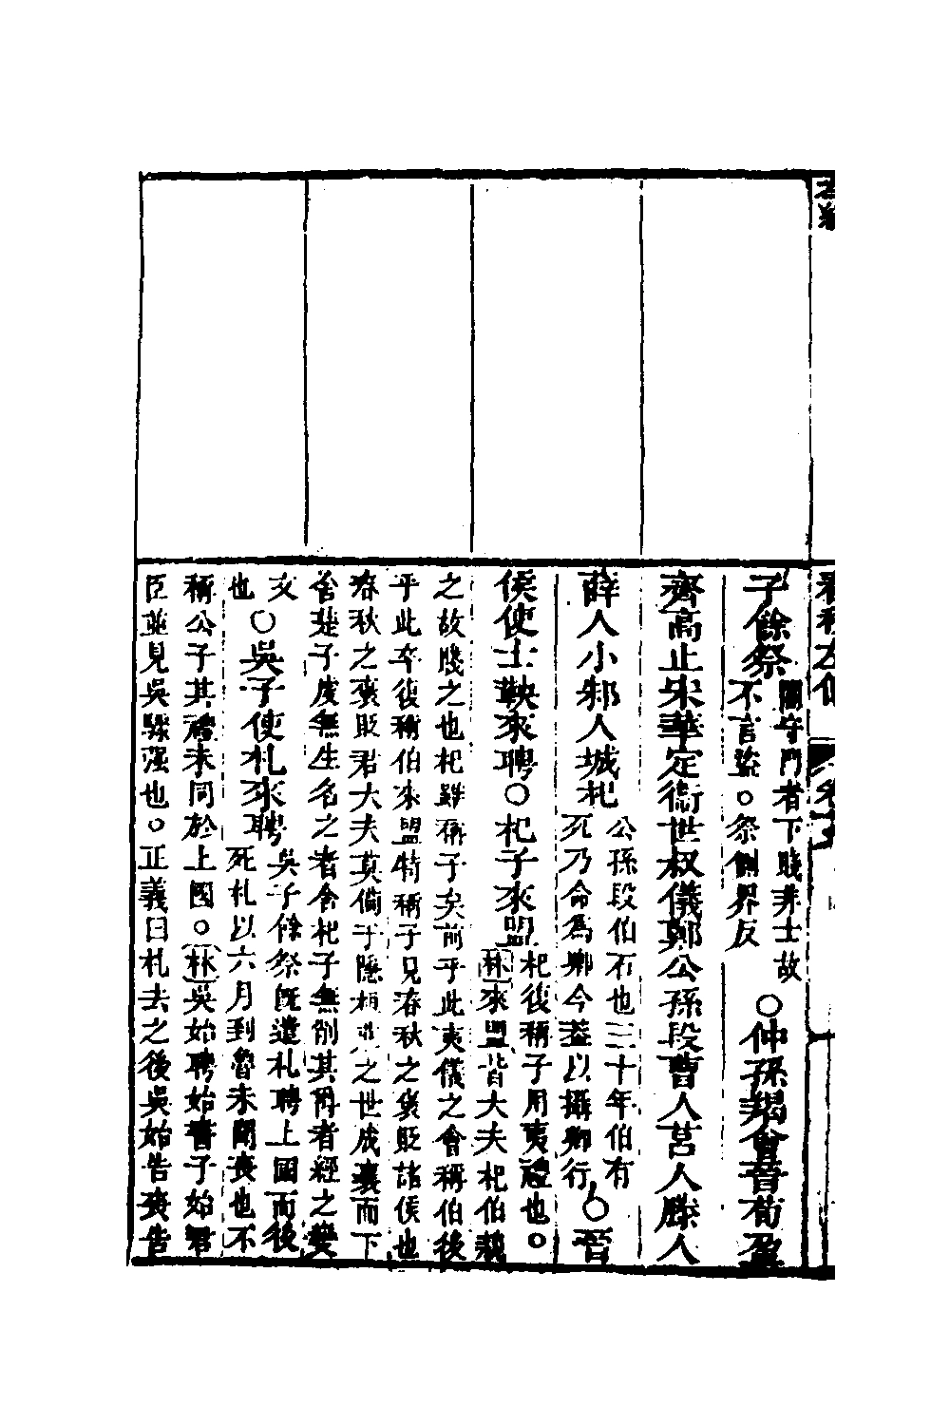 子餘祭
閽守門者下賤非士故
不言盜○祭側界反
○仲孫羯會晉荀盈
齊高止宋華定衞世叔儀鄭公孫段曹人莒人滕人
薛人小邾人城杞
公孫段伯石也三十年伯有
死乃命爲卿今蓋以攝卿行
○晉
侯使士鞅來聘○杞子來盟
杞復稱子用夷禮也○
林來盟皆大夫杞伯親
之故賤之也杞雖稱子矣前乎此夷儀之會稱伯後
乎此卒復稱伯來盟特稱子見春秋之襃貶諸侯也
春秋之襃貶君大夫莫備于隱桓
之世成襄而下
舍楚子虔無生名之者舍杞子無削其爵者經之變
文
也
○吳子使札來聘
吳子餘祭旣遣札聘上國而後
死札以六月到魯未聞喪也不
稱公子其禮未同於上國○林吳始聘始書子始君
臣並見吳驟强也○正義曰札去之後吳始告喪告